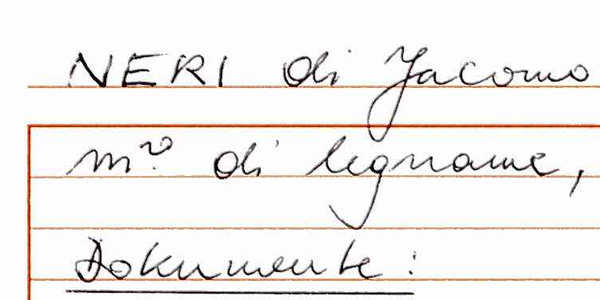 NERI di Jacomo
m.º di legname,
Dokumente: